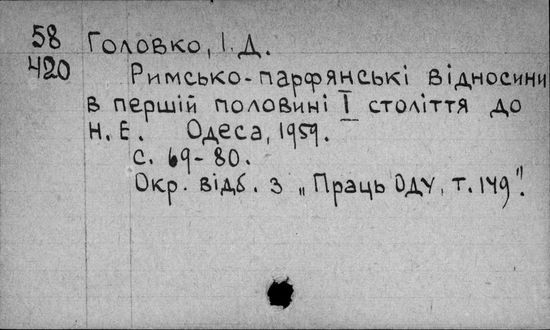 58 Головко, І. Д.
420 Римсько-парфянські відносини
в першій половині I століття до
н. е. Одеса, 1959.
с. 69-80.
Окр. відб. з „Праць ОДУ, т. 149".